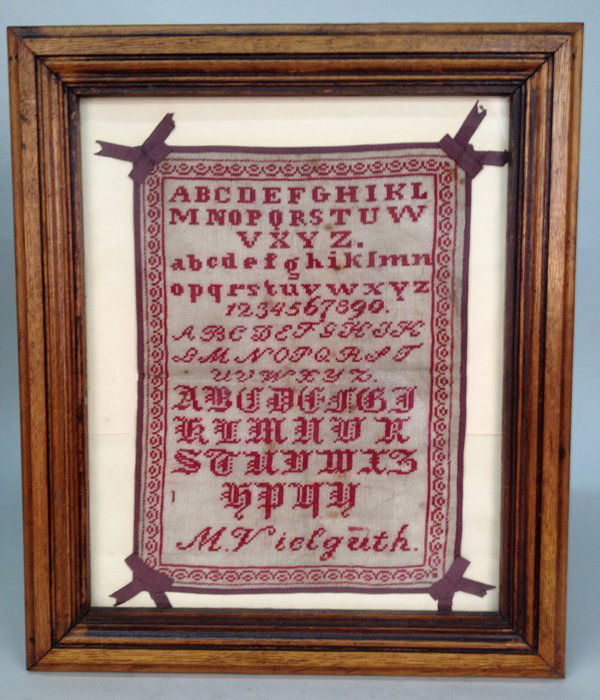 ABCDEFGHIKL
MNOPQRSTUW
VXYZ.
abcdefghiklmn
opqrstuvwxyz
1234567890.
ABCDEFGHIK
LMNOPQRST
UVWXYZ.
ABCDEFGI
KLMN
STUVWXZ
HPQY
M. Vielgūth.